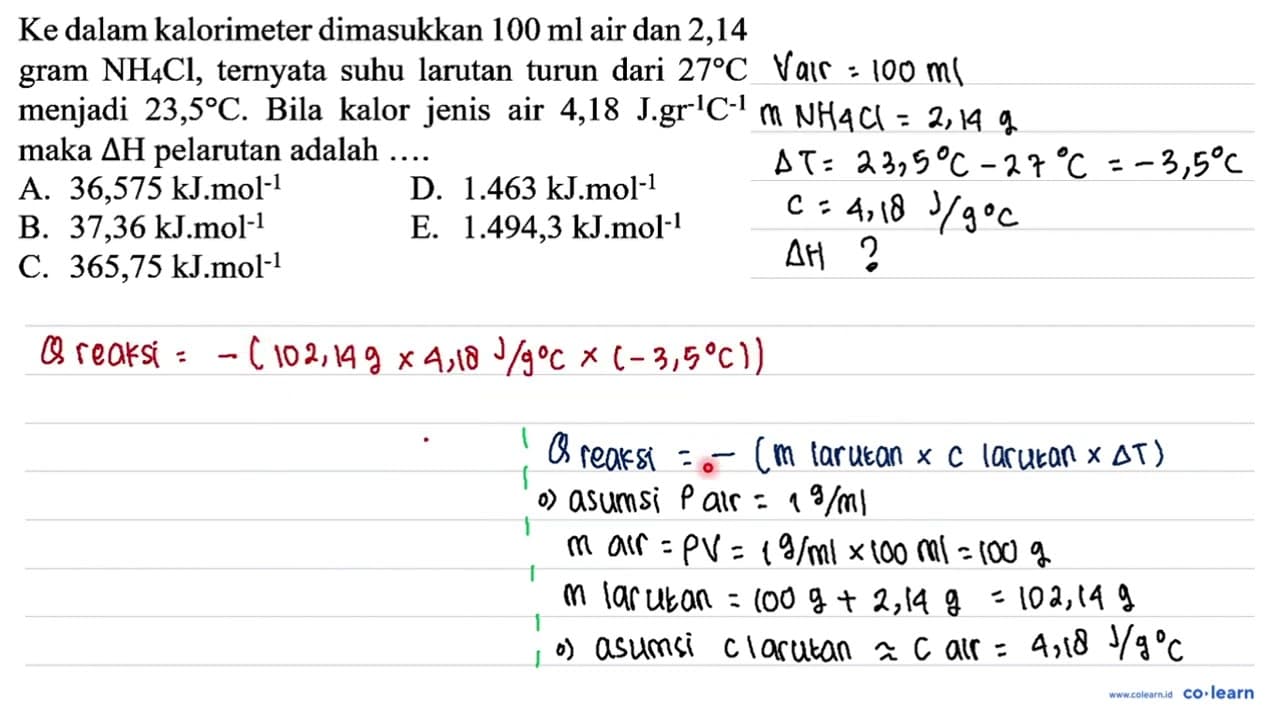 Ke dalam kalorimeter dimasukkan 100 ml air dan 2,14
gram NH₄Cl, ternyata suhu larutan turun dari 27°C
menjadi 23,5°C. Bila kalor jenis air 4,18 J.gr⁻¹C⁻¹
maka ΔH pelarutan adalah ....
A. 36,575 kJ.mol⁻¹
D. 1.463 kJ.mol⁻¹
B. 37,36 kJ.mol⁻¹
E. 1.494,3 kJ.mol⁻¹
C. 365,75 kJ.mol⁻¹
V air = 100 ml
m NH4Cl = 2,14 g
ΔT = 23,5°C - 27°C = -3,5°C
c = 4,18 J/g°C
ΔH ?
Q reaksi = - (102,14 g × 4,18 J/g°C × (-3,5°C))
Q reaksi = - (m larutan × c larutan × ΔT)
o) asumsi ρ air = 1 g/ml
m air = ρV = 1 g/ml × 100 ml = 100 g
m larutan = 100 g + 2,14 g = 102,14 g
o) asumsi c larutan ≈ c air = 4,18 J/g°C
www.colearn.id co·learn